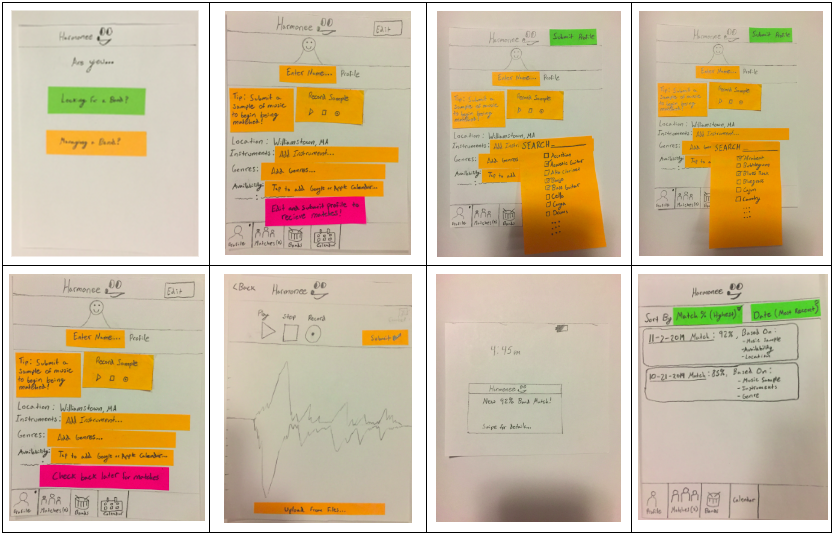 Hormonee
Are you...
Looking for a Band?
Managing a Band?
Hormonee
Edit
Enter Name... Profile
Tip: Submit a
sample of music
to begin being
matched!
Record Sample
Location: Williamstown, MA
Instruments: Add Instrument...
Genres: Add Genres...
Availability: Tap to add Google or Apple Calendar...
Edit and submit profile to
recieve matches!
Profile
Matches(4)
Bands
Calendar
Hormonee
Submit Profile
Enter Name... Profile
Tip: Submit a
sample of music
to begin being
matched!
Record Sample
Location: Williamstown, MA
Instruments: Add
Genres: Add
Availability: Tap to
SEARCH
Acoustic Guitar
Alto Clarinet
Banjo
Bass Guitar
Cello
Drums
...
Profile
Matches(4)
Bands
Hormonee
Submit Profile
Enter Name... Profile
Tip: Submit a
sample of music
to begin being
matched!
Record Sample
Location: Williamstown, MA
Instruments: Add
Genres: Add
Availability: Tap to
SEARCH
Bluegrass
Country
...
Profile
Matches(4)
Bands
Hormonee
Edit
Enter Name... Profile
Tip: Submit a
sample of music
to begin being
matched!
Record Sample
Location: Williamstown, MA
Instruments: Add Instrument...
Genres: Add Genres...
Availability: Tap to add Google or Apple Calendar...
Check back later for matches
Profile
Matches(4)
Bands
Calendar
<Back
Hormonee
Play Stop Record
Submit
Upload from Files...
4:45
Hormonee
New 92% Band Match!
Swipe for details...
Hormonee
Sort By Match % (Highest) Date (Most Recent)
11-2-2019 Match: 92%, Based On:
- Music Sample
- Availability
- Location
10-21-2019 Match: 85%, Based On:
- Music Sample
- Instruments
- Genre
Profile
Matches(4)
Bands
Calendar